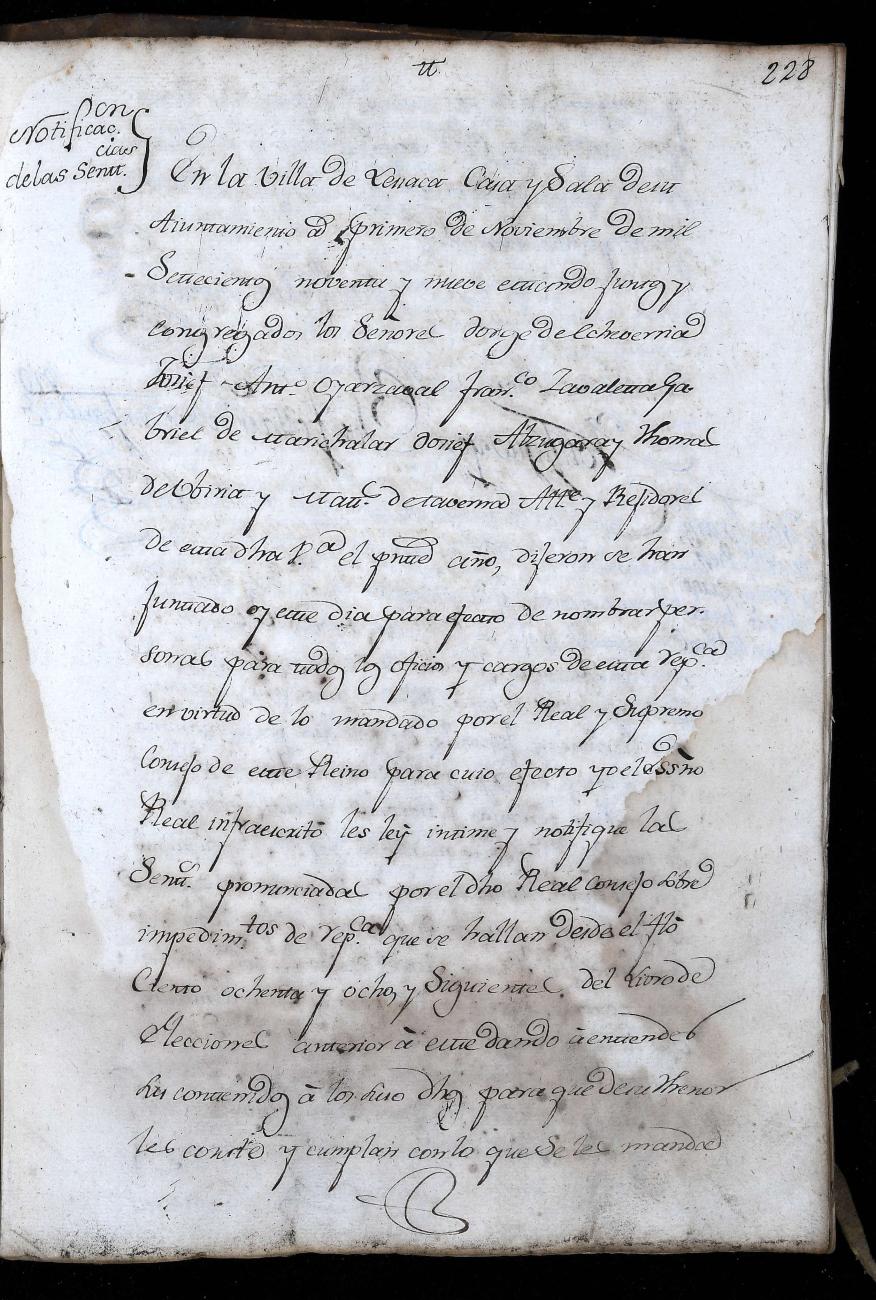 tt.
228
Notificac.on
cias
de las Sent.
En la Villa de Lesaca Casa y Sala de su
Aiuntamiento a primero de Noviembre de mil
Setecientos noventa y nueve estando juntos y
congregados los Señores Jorge de Echeverria
Josef Ant.º Oyarzaval Fran.co Zavaleta Ga-
briel de Marichalar Josef Alzugaray Thomas
de Ubiria y de Taverna Att.e y Rejidores
de esta dha V.a el pnte año, dijeron se han
juntado oy este dia para efecto de nombrar per-
sonas para todos los oficios y cargos de esta rep.ca
en virtud de lo mandado por el Real y Supremo
Consejo de este Reino para cuio efecto yo el Essno
Real infraescrito les ley intime y notifique las
Sent.s pronunciadas por el dho Real Consejo sobre
impedim.tos de rep.ca que se hallan desde el flo
Ciento ochenta y ocho, y Siguientes del Livro de
Elecciones anterior à este dando à entender
sus contenidos à los suso dhos para que de su thenor
les conste y cumplan con lo que Se les manda